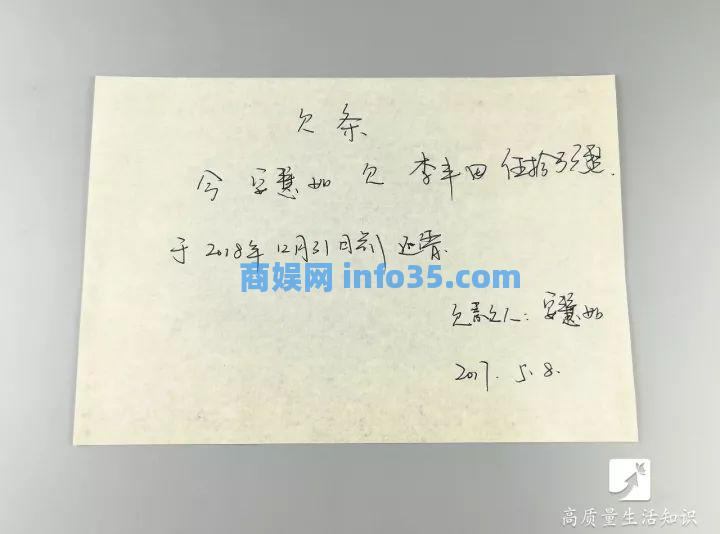 欠条
今 安慧如 欠 李丰田 伍拾万整.
于 2018年 12月31日前 还清.
商娱网 info35.com
欠款人: 安慧如
2017. 5. 8.
高质量生活知识